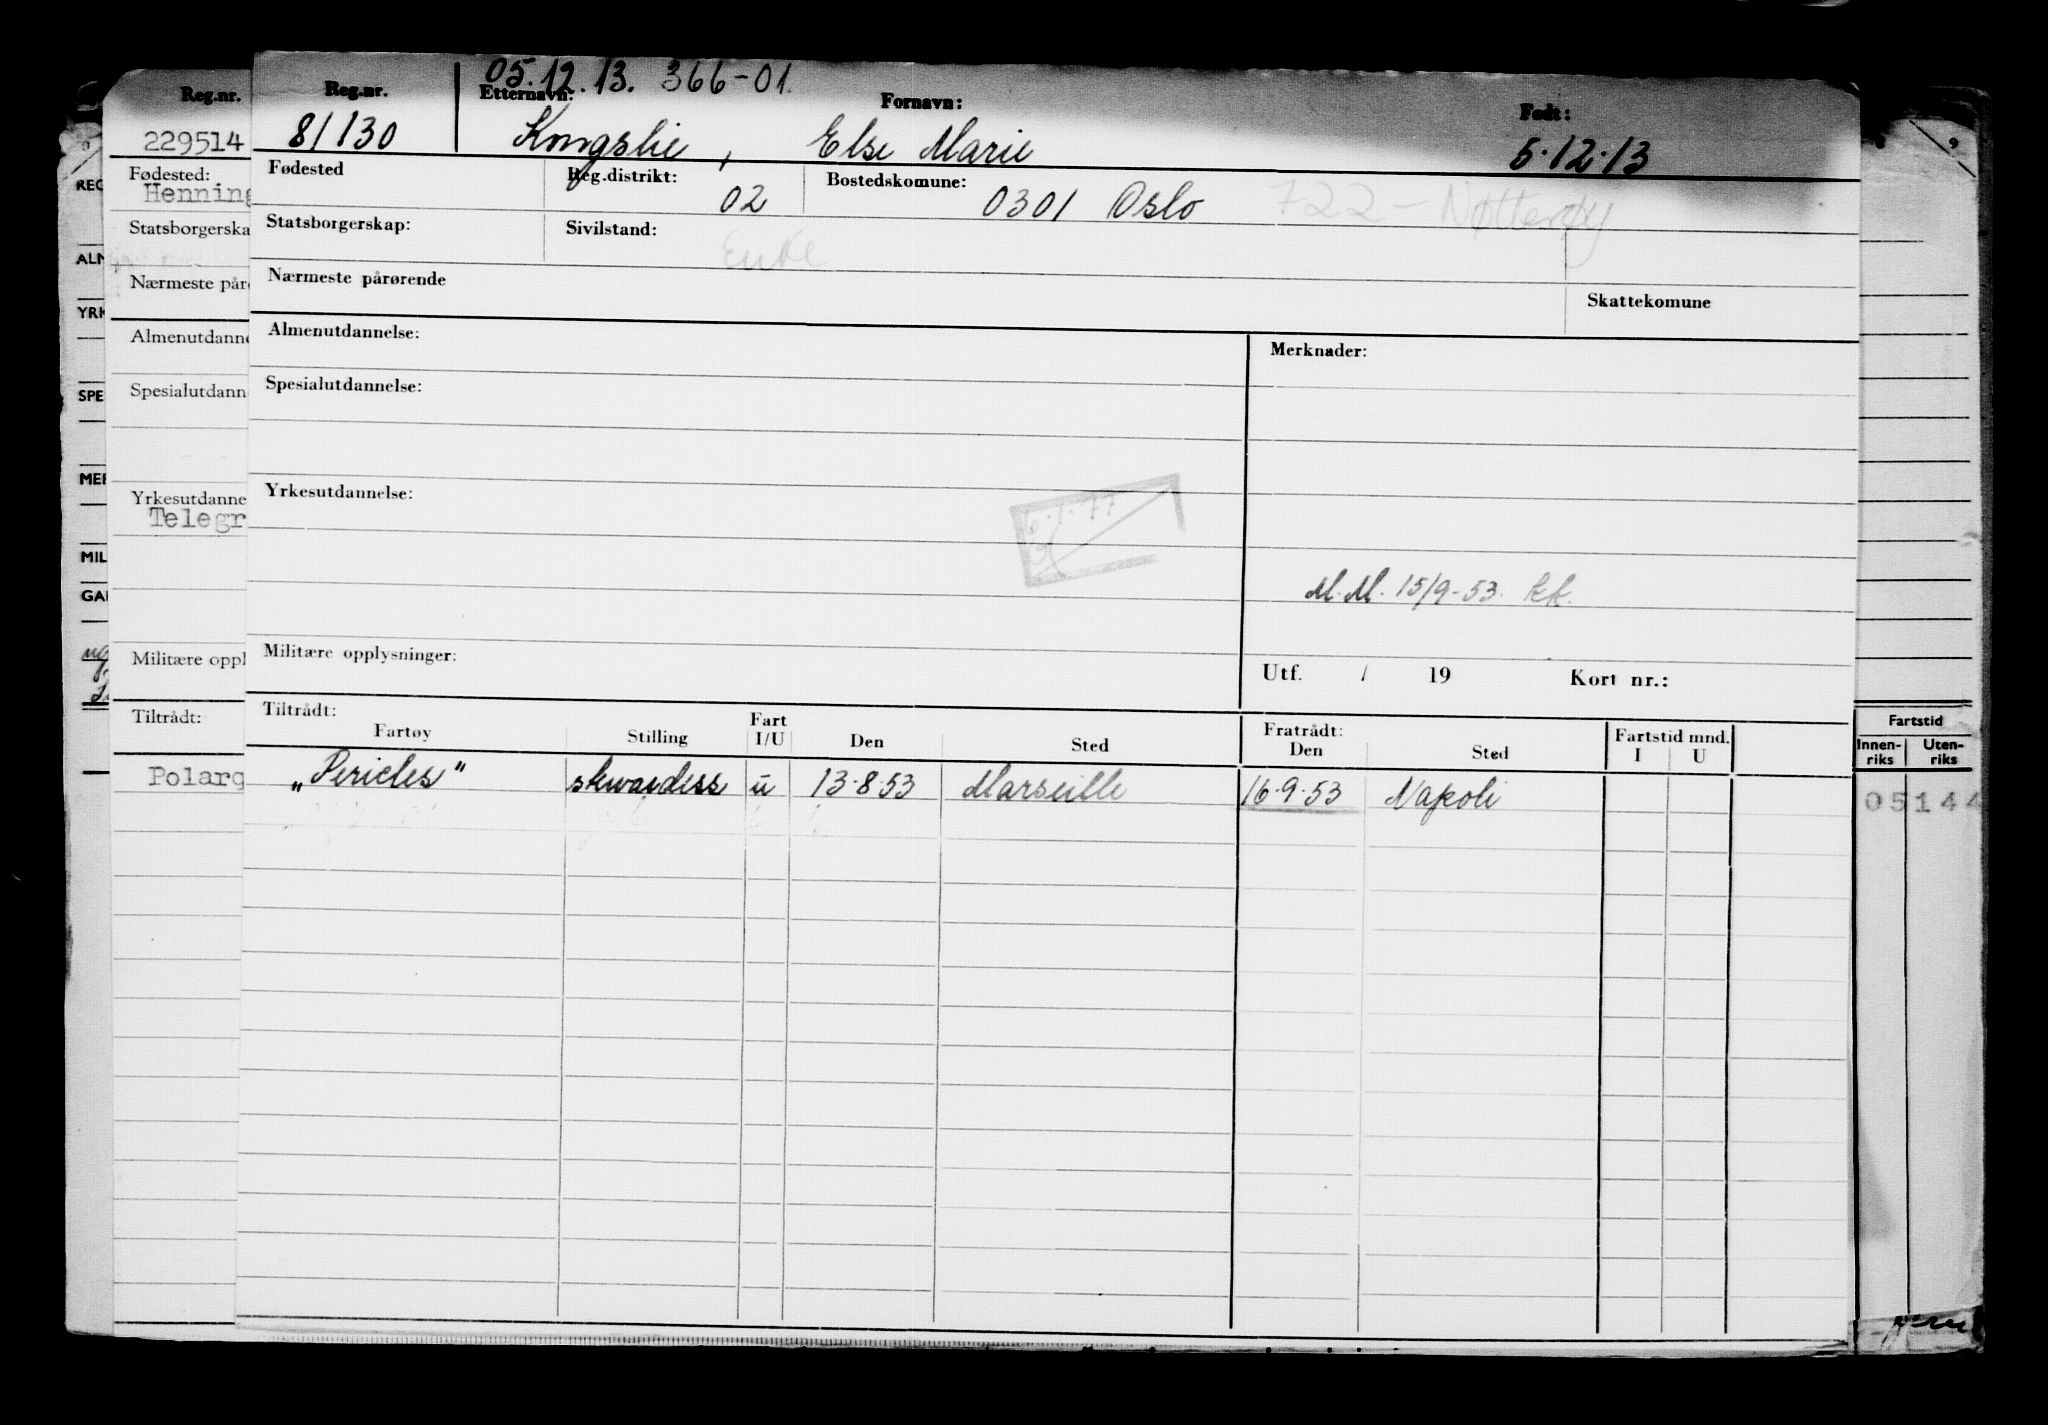 05.12.13. 366-01.
Reg.nr. Reg.nr. Etternavn: Fornavn: Født:
229514 81130 Kongslie, Else Marie 5.12.13
Fødested: Fødested Reg.distrikt: Bostedskomune:
Henning 02 0301 Oslo 722 - Nøtterøy
REG
Statsborgerska Statsborgerskap: Sivilstand:
Enke
ALM
Nærmeste pår Nærmeste pårørende Skattekomune
YRK
Almenutdanne Almenutdannelse: Merknader:
SPE Spesialutdann Spesialutdannelse:
MER
Yrkesutdanne Yrkesutdannelse:
Telegr
6.1.77
MIL
GAI M.M. 15/9-53.
Militære oppl Militære opplysninger: Utf. / 19 Kort nr.:
Tiltrådt: Tiltrådt: Fratrådt: Fartstid mnd. Fartstid
Fartøy Stilling Fart I/U Den Sted Den Sted I U Innen-riks Uten-riks
Polarq „Pericles" stewardess u 13.8.53 Marseille 16.9.53 Napoli 05144